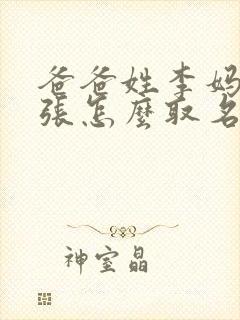 爸爸姓李妈
張怎麽取名
神室晶